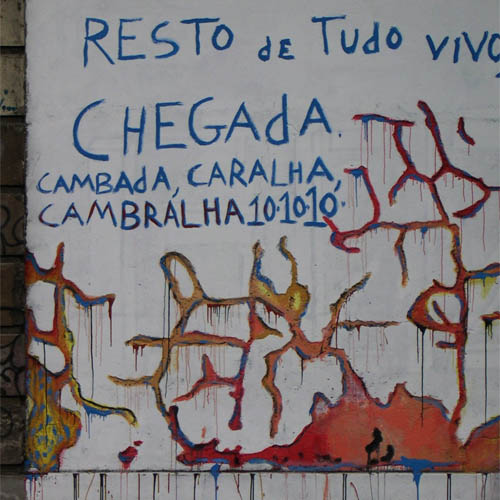 RESTO de TUdO VIVO
CHEGAdA.
CAMBAdA, CARALHA,
CAMBRALHA 10.10.10.